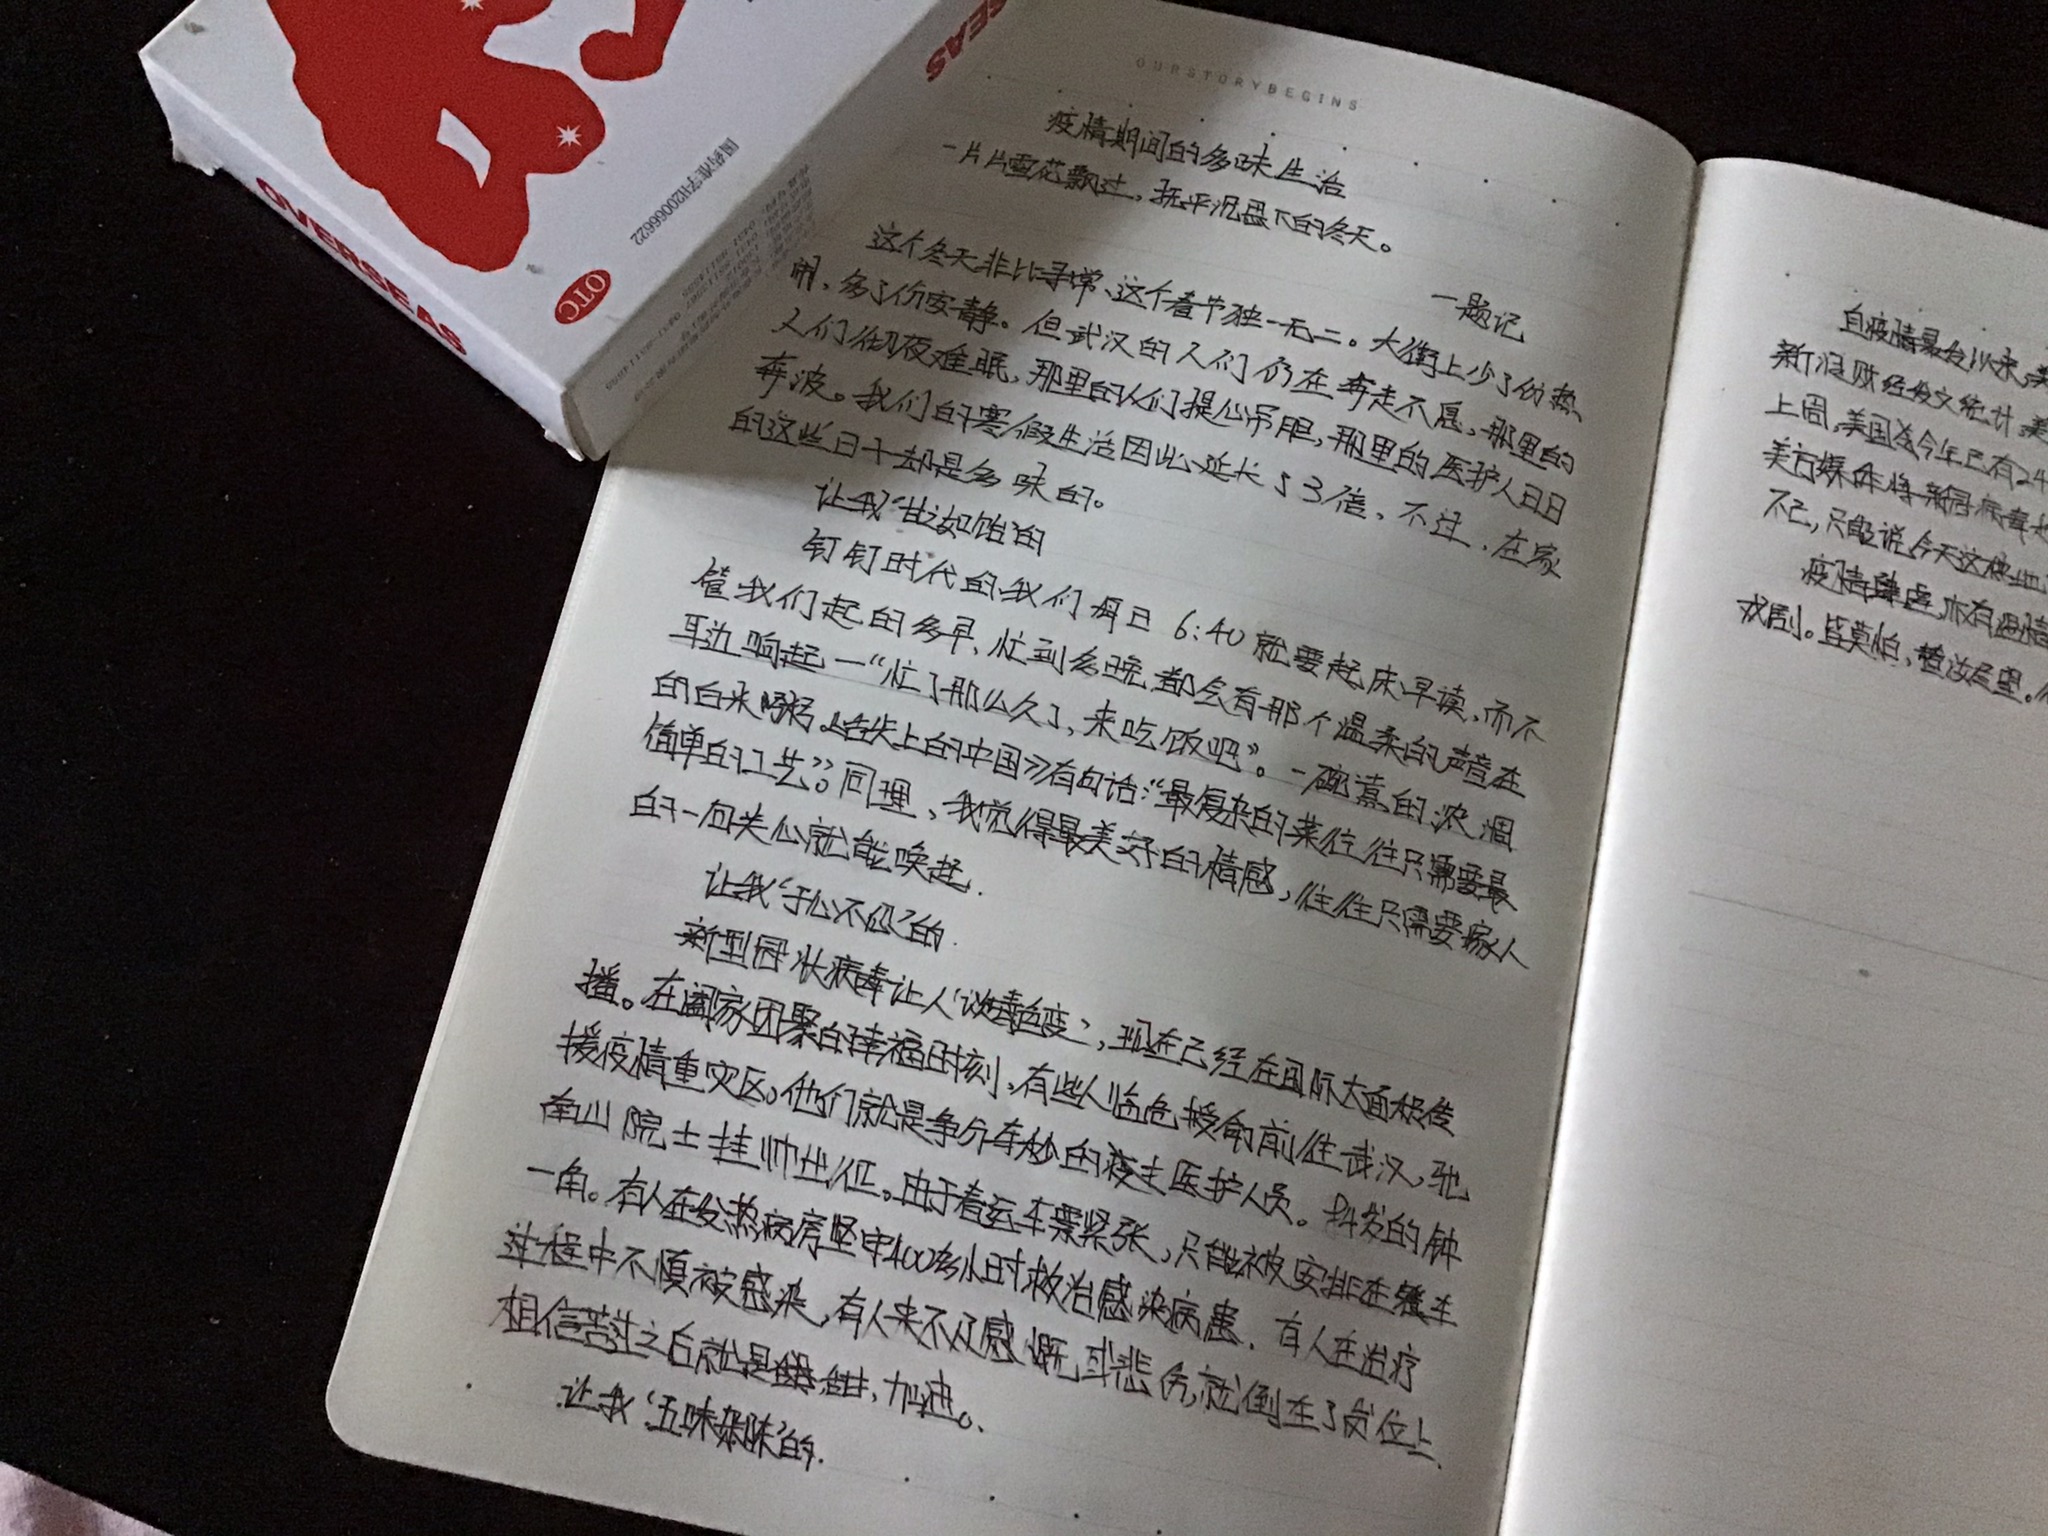 OVERSEAS
OTC
OURSTORYBEGINS
疫情期间的多味生活
一片片雪花飘过，抚平沉下的冬天。
一题记
这个冬天非比寻常、这个春节独一无二。大街上少了份热
闹，多了份安静。但武汉的人们仍在奔走不息，那里的
人们彻夜难眠，那里的人们提心吊胆，那里的医护人日日
奔波。我们的寒假生活因此延长了3倍，不过，在家
的这些日子却是多味的。
让我‘甘之如饴’的
钉钉时代的我们每日6:40就要起床早读，而不
管我们起的多早，忙到多晚，都会有那个温柔的声音在
耳边响起一“忙了那么久了，来吃饭吧”。一碗熬的浓稠
的白米粥。《舌尖上的中国》有句话：“最复杂的菜往往只需要最
简单的工艺”。同理、我觉得最美好的情感，往往只需要家人
的一句关心就能唤起.
让我‘于心不忍’的.
新型冠状病毒让人‘谈毒色变’，现在已经在国际大面积传
播。在阖家团聚的幸福时刻，有些人临危授命前往武汉，驰
援疫情重灾区。他们就是争分夺秒的医护人员。的钟
南山院士挂帅出征。由于春运车票紧张，只能被安排在餐车
一角。有人在发热病房坚守400多小时救治感染病患. 有人在治疗
过程中不慎被感染，有人来不及感慨或悲伤，就倒在了岗位上.
相信苦过之后就是甜，加油。
让我‘五味杂陈’的.
自疫情暴发以来，美
新浪财经发文统计，美
上周，美国今年已有24
美方媒体将新冠病毒
不已，只能说今天这
疫情肆虐，亦有温情
戏剧。皆莫怕，